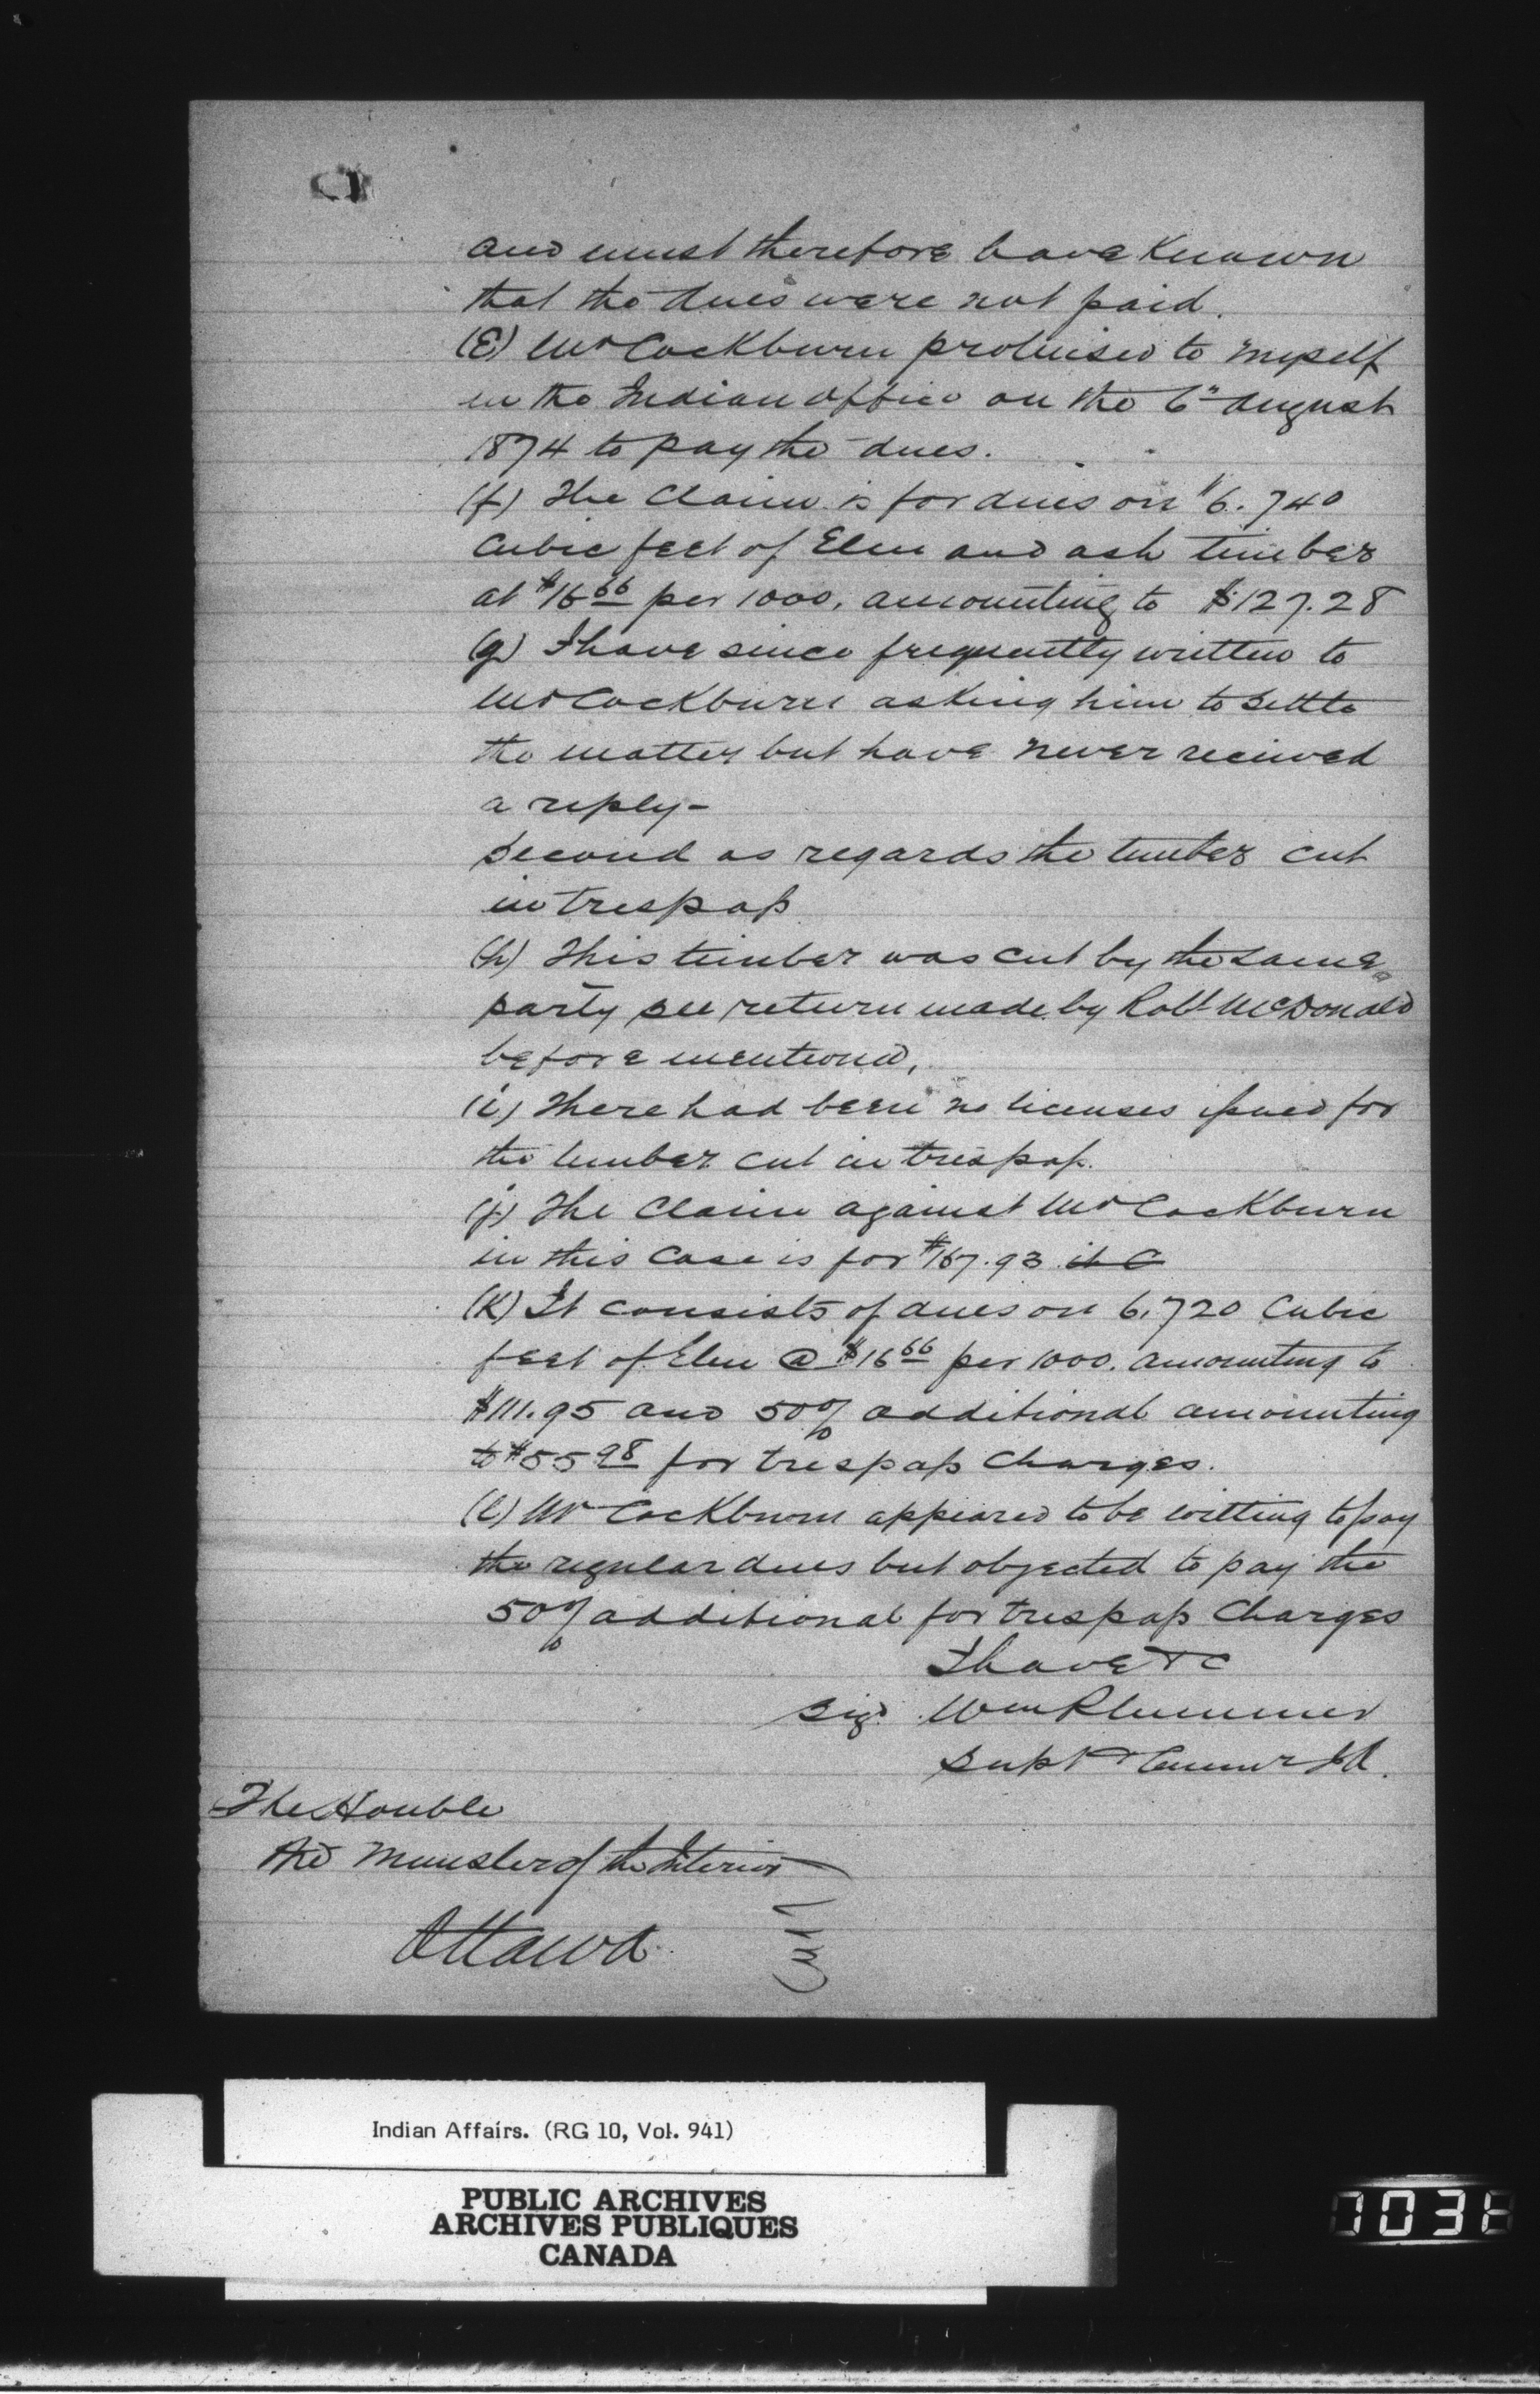 and must therefore have Known
that the dues were not paid.
(E) Mr Cockburn promised to myself
in the Indian office on the 6" August
1874 to pay the dues.
(f) The Claim is for dues on $6.740
Cubic feet of Elm and ash timber
at $16 66 per 1000, amounting to $127.28
(g) I have since frequently written to
Mr Cockburn asking him to settle
the matter but have never recieved
a reply-
Second as regards the timber cut
in trespass
(h) This timber was cut by the same
party see return made by Robt McDonald
before mentioned,
(i) There had been no licenses issued for
the timber cut in trespass.
(j) The Claim against Mr Cockburn
in this Case is for $167.93 it C
(K) It consists of dues on 6,720 Cubic
feet of Elm @ $16 66 per 1000. amounting to
$111.95 and 50% additional amounting
to $55 98 for trespass Charges.
(l) Mr Cockburn appeared to be willing to pay
the regular dues but objected to pay the
50% additional for trespass Charges
I have &c
Sigd Wm Plummer
Supt & Commr I A.
The Honble
The Minister of the Interior
Ottawa
Indian Affairs. (RG 10, Vol. 941)
PUBLIC ARCHIVES
ARCHIVES PUBLIQUES
CANADA